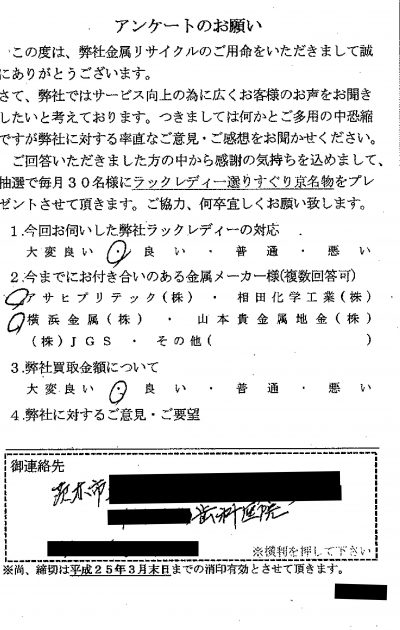 アンケートのお願い
この度は、弊社金属リサイクルのご用命をいただきまして誠
にありがとうございます。
さて、弊社ではサービス向上の為に広くお客様のお声をお聞き
したいと考えております。つきましては何かとご多用の中恐縮
ですが弊社に対する率直なご意見・ご感想をお聞かせください。
ご回答いただきました方の中から感謝の気持ちを込めまして、
抽選で毎月30名様にラックレディー選りすぐり京名物をプレ
ゼントさせて頂きます。ご協力、何卒宜しくお願い致します。
1.今回お伺いした弊社ラックレディーの対応
大変良い ・ 良い ・ 普通 ・ 悪い
2.今までにお付き合いのある金属メーカー様(複数回答可)
アサヒプリテック(株) ・ 相田化学工業(株)
横浜金属(株) ・ 山本貴金属地金(株)
(株)JGS ・ その他( )
3.弊社買取金額について
大変良い ・ 良い ・ 普通 ・ 悪い
4.弊社に対するご意見・ご要望
御連絡先
茨木市
歯科医院
※横判を押して下さい
※尚、締切は平成25年3月末日までの消印有効とさせて頂きます。